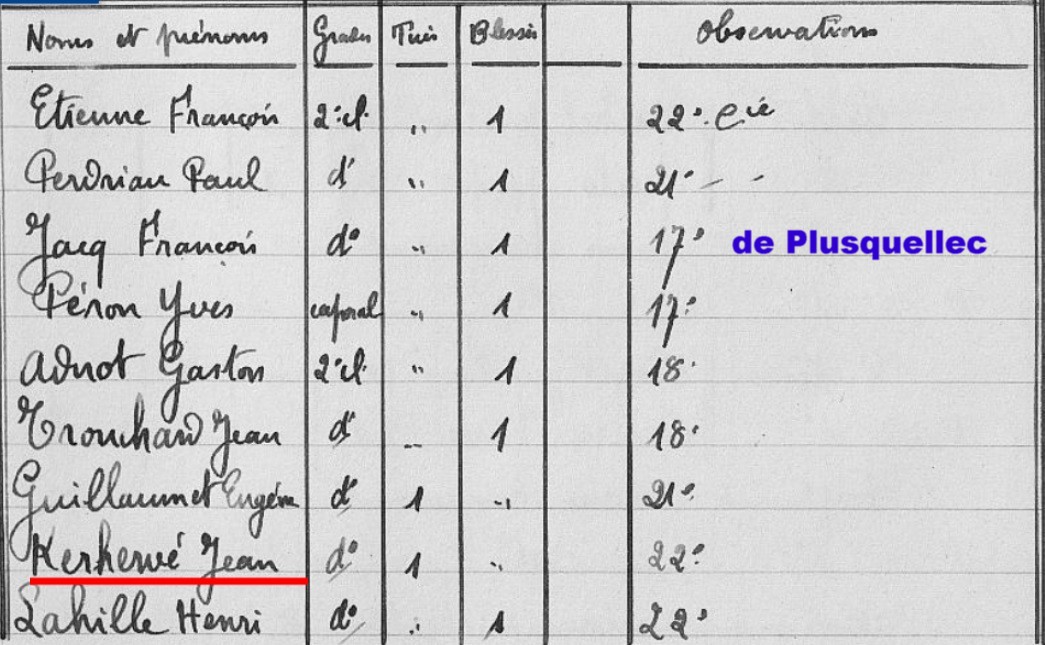 Noms et prénoms Grades Tués Blessés Observations
Etienne François 2e cl. " 1 22e Cie
Perdrian Paul do " 1 21e - -
Jacq François do " 1 17e de Plusquellec
Péron Yves caporal " 1 17e
Adnot Gaston 2e cl. " 1 18e
Trouchard Jean do " 1 18e
Guillaumet Eugène do 1 " 21e
Kerhervé Jean do 1 " 22e
Lahille Henri do " 1 22e